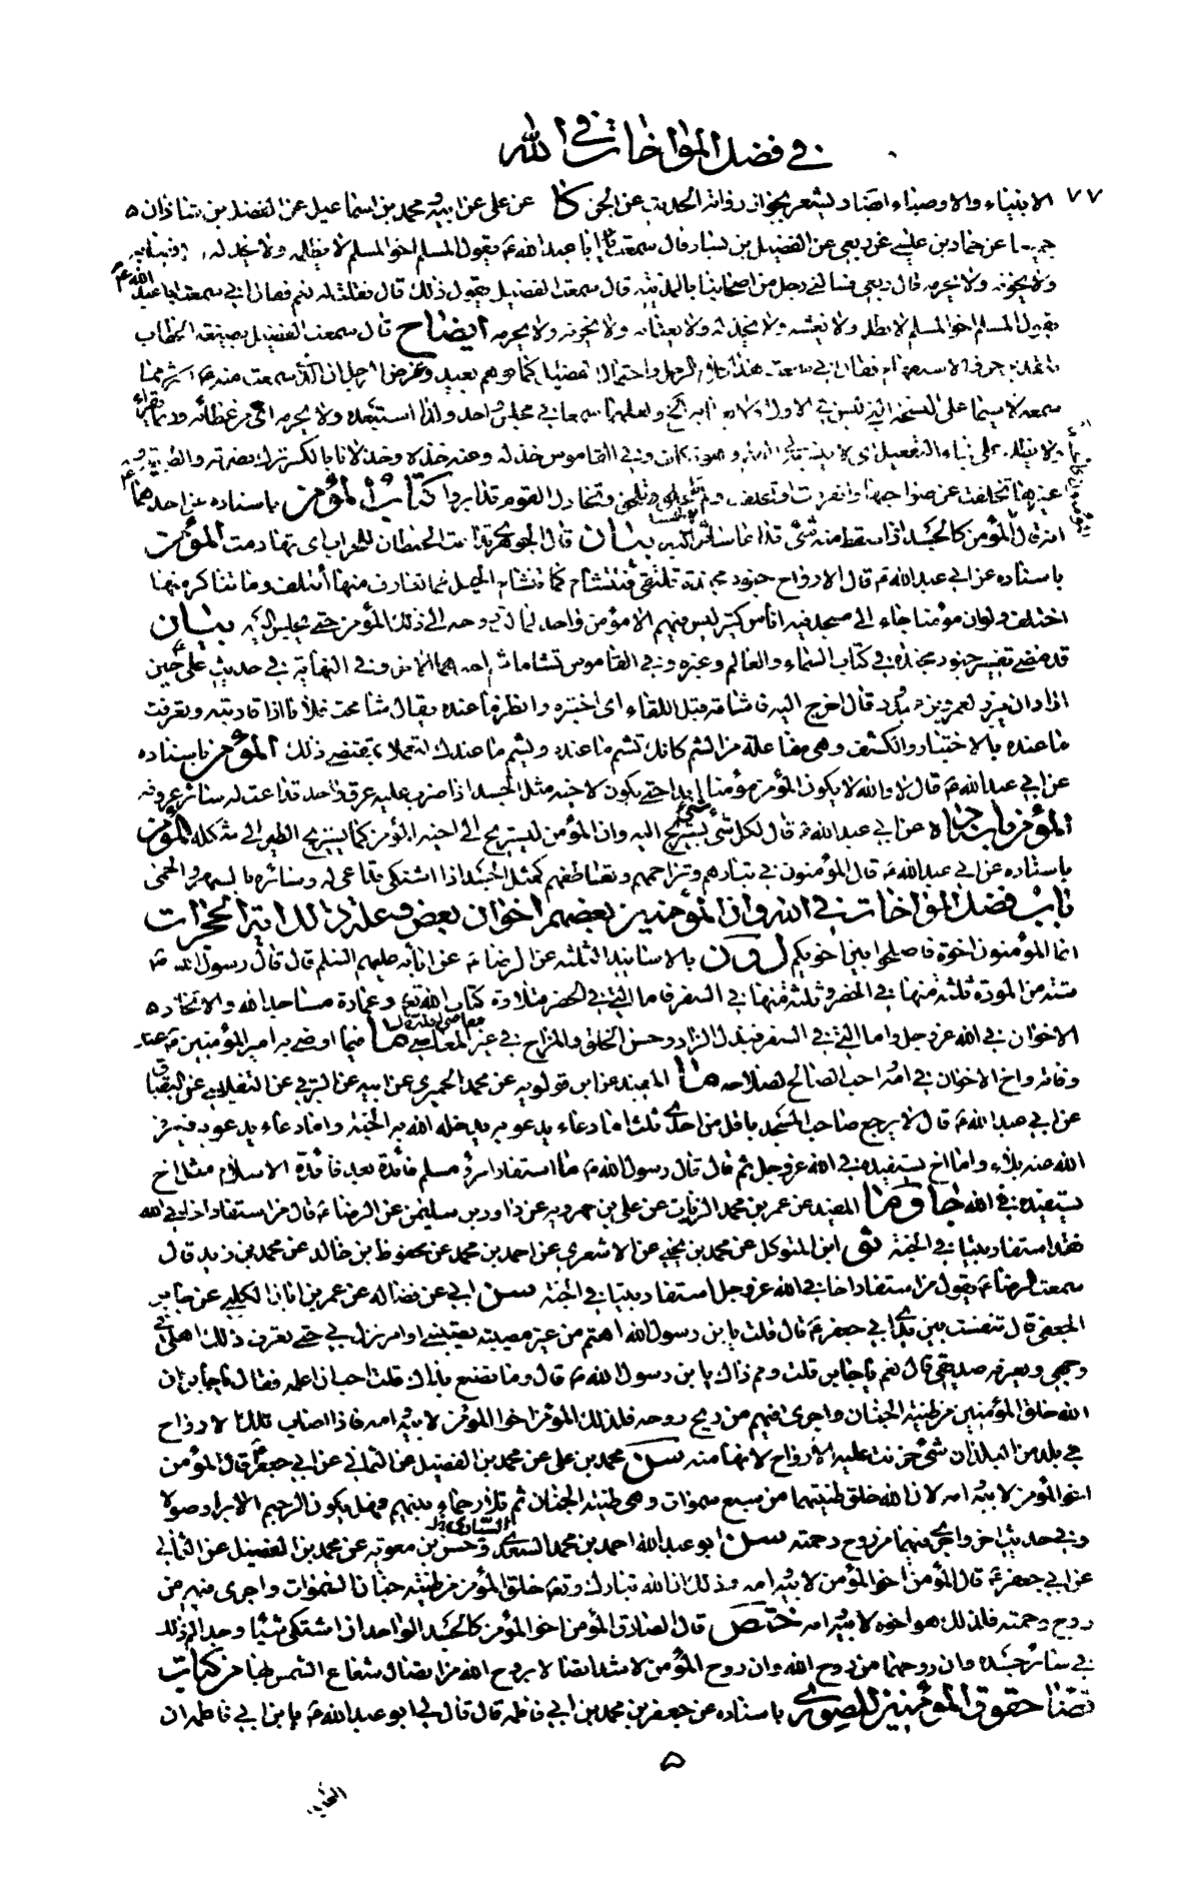 في فضل المؤاخات في الله
٧٧ الانبياء والاوصياء ايضا ويشعر بجواز رواية الحديث عن الجن كا عن علي عن ابيه ومحمد بن اسماعيل عن الفضل بن شاذان
جميعا عن حماد بن عيسى عن ربعي عن الفضيل بن يسار قال سمعت ابا عبد الله ع يقول المسلم اخو المسلم لا يظلمه ولا يخذله
ولا يخونه ولا يحرمه قال ربعي فسألني رجل من اصحابنا بالمدينة قال سمعت الفضيل يقول ذلك قال فقلت له نعم فقال اني سمعت ابا عبد الله ع
يقول المسلم اخو المسلم لا يظلمه ولا يغشه ولا يخذله ولا يغتابه ولا يخونه ولا يحرمه ايضاح قال سمعت الفضيل بصيغة الخطاب
سمعه لا سيما على النسخة التي ليس في الاول ولا يغتابه الخ ولعلهما سمعا في مجلس واحد ولذا استبعده ولا يحرمه اي من عطائه
على بناء التفعيل وفي القاموس خذله وعنه خذلا وخذلانا بالكسر ترك نصرته والظبية وغيرها
تخلفت عن صواحبها وانفردت وتخاذل القوم تدابروا كتاب المؤمن باسناده عن احدهما ع
انه قال المؤمن كالجسد اذا سقط منه شئ تداعا سائر الجسد بيان قال الجوهري تداعت الحيطان للخراب اي تهادمت المؤمن
باسناده عن ابي عبد الله ع قال الارواح جنود مجندة تلتقي فتتشام كما تتشام الخيل فما تعارف منها ائتلف وما تناكر منها
اختلف ولو ان مؤمنا جاء الى مسجد فيه اناس كثير ليس فيهم الا مؤمن واحد لمالت روحه الى ذلك المؤمن حتى يجلس اليه بيان
قد مضى تفسير جنود مجندة في كتاب السماء والعالم وغيره وفي القاموس تشاما شم احدهما الاخر وفي النهاية في حديث علي ع حين
اراد ان يبرز لعمرو بن ود قال اخرج اليه فاشامه قبل اللقاء اي اختبره وانظر ما عنده يقال شاممت فلانا اذا قاربته وتعرفت
ما عنده بالاختبار والكشف وهي مفاعلة من الشم كانك تشم ما عنده ويشم ما عندك لتعملا بمقتضى ذلك المؤمن باسناده
عن ابي عبد الله ع قال لا والله لا يكون المؤمن مؤمنا ابدا حتى يكون لاخيه مثل الجسد اذا ضرب عليه عرق واحد تداعت له سائر عروقه
المؤمن باسناده عن ابي عبد الله ع قال لكل شئ شئ يستريح اليه وان المؤمن يستريح الى اخيه المؤمن كما يستريح الطير الى شكله المؤمن
باسناده عن ابي عبد الله ع قال المؤمنون في تبارهم وتراحمهم وتعاطفهم كمثل الجسد اذا اشتكى تداعى له وسائره بالسهر والحمى
باب فضل المؤاخات في الله وان المؤمنين بعضهم اخوان بعض وعلة ذلك الايات الحجرات
انما المؤمنون اخوة فاصلحوا بين اخويكم ل ون بالاسانيد الثلثة عن الرضا ع عن ابائه عليهم السلم قال قال رسول الله ص
ستة من المروة ثلثة منها في الحضر وثلثة منها في السفر فاما التي في الحضر فتلاوة كتاب الله تع وعمارة مساجد الله واتخاذ
الاخوان في الله عز وجل واما التي في السفر فبذل الزاد وحسن الخلق والمزاح في غير المعاصي ما فيما اوصى به امير المؤمنين ع عند
وفاته واخ الاخوان في الله واحب الصالح لصلاحه ما المفيد عن ابن قولويه عن محمد الحميري عن ابيه عن البرقي عن التفليسي عن البقباق
عن ابي عبد الله ع قال لا يرجع صاحب المسجد باقل من احدى ثلث اما دعاء يدعو به يدخله الله به الجنة واما دعاء يدعو به فيصرف
الله عنه بلاء واما اخ يستفيده في الله عز وجل ثم قال قال رسول الله ص ما استفاد امرؤ مسلم فائدة بعد فائدة الاسلام مثل اخ
يستفيده في الله جا وما المفيد عن عمر بن محمد الزيات عن علي بن مهرويه عن داود بن سليمن عن الرضا ع قال من استفاد اخا في الله
فقد استفاد بيتا في الجنة ثو ابن المتوكل عن محمد بن يحيى عن الاشعري عن احمد بن محمد عن محفوظ بن خالد عن محمد بن زيد قال
سمعت الرضا ع يقول من استفاد اخا في الله عز وجل استفاد بيتا في الجنة سن ابي عن فضالة عن عمر بن ابان الكلبي عن جابر
الجعفي قال تنفست بين يدي ابي جعفر ع قال قلت يا بن رسول الله اهتم من غير مصيبة تصيبني او امر نزل بي حتى يعرف ذلك اهلي في
وجهي ويعرفه صديقي قال نعم يا جابر قلت ومم ذاك يا بن رسول الله ص قال وما تصنع بذاك قلت احب ان اعلمه فقال يا جابر ان
الله خلق المؤمنين من طينة الجنان واجرى فيهم من ريح روحه فلذلك المؤمن اخو المؤمن لابيه وامه فاذا اصاب تلك الارواح
في بلد من البلدان شئ حزنت عليه الارواح لانها منه سن محمد بن علي عن محمد بن الفضيل عن الثمالي عن ابي جعفر ع قال المؤمن
اخو المؤمن لابيه وامه لان الله خلق طينتهما من سبع سموات وهي طينة الجنان ثم تلا رحماء بينهم فهل يكون الرحيم الا برا وصولا
وفي حديث اخر واجرى فيهما من روح رحمته سن ابو عبد الله احمد بن محمد السياري وحسن بن معوية عن محمد بن الفضيل عن الثمالي
عن ابي جعفر ع قال المؤمن اخو المؤمن لابيه وامه وذلك ان الله تبارك وتع خلق المؤمن من طينة جنان السموات واجرى فيهم من
روح رحمته فلذلك هو اخوه لابيه وامه ختص قال الصادق المؤمن اخو المؤمن كالجسد الواحد ان اشتكى شيئا وجد الم ذلك
في سائر جسده وان روحهما من روح الله وان روح المؤمن لاشد اتصالا بروح الله من اتصال شعاع الشمس بها من كتاب
قضا حقوق المؤمنين للصوري باسناده عن جعفر بن محمد بن ابي فاطمة قال قال لي ابو عبد الله ع يا بن ابي فاطمة ان